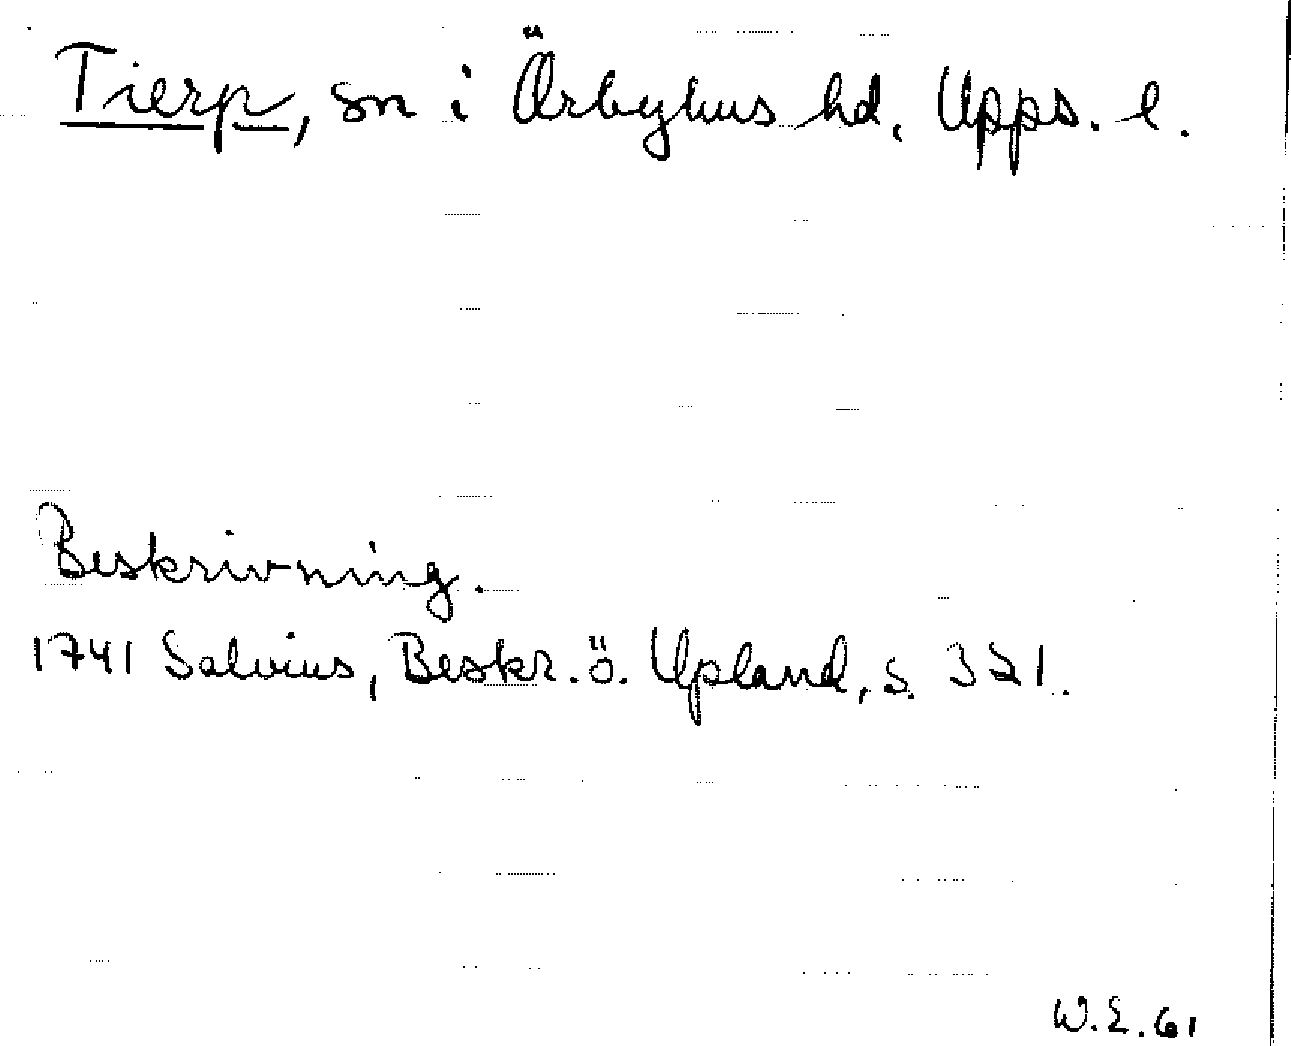 Tierp, sn i Örbyhus hd. Upps. l.
Beskrivning.
1741 Salvius, Beskr. ö. Upland, s. 321.
W.E. 61